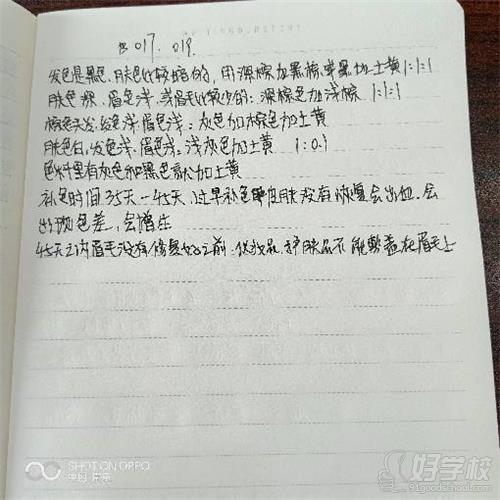 017. 019.
发色是黑色.肤色比较暗的,用深棕加黑棕 黑加土黄1:1:1
肤色深.眉色浅.或眉毛比较少的:深棕色加浅棕 1:1:1
棕色头发,发色浅.眉色浅:灰色加棕色加土黄
肤色白,发色浅.眉色浅:浅灰色加土黄 1:0.1
色料里有灰色和黑色 加土黄
补色时间35天-45天.过早补色 皮肤没有恢复会出血.会
出现色差,会增生
45天之内眉毛没有修复好之前.化妆品.护肤品不能 盖在眉毛上
SHOT ON OPPO
好学校
91goodschool.com